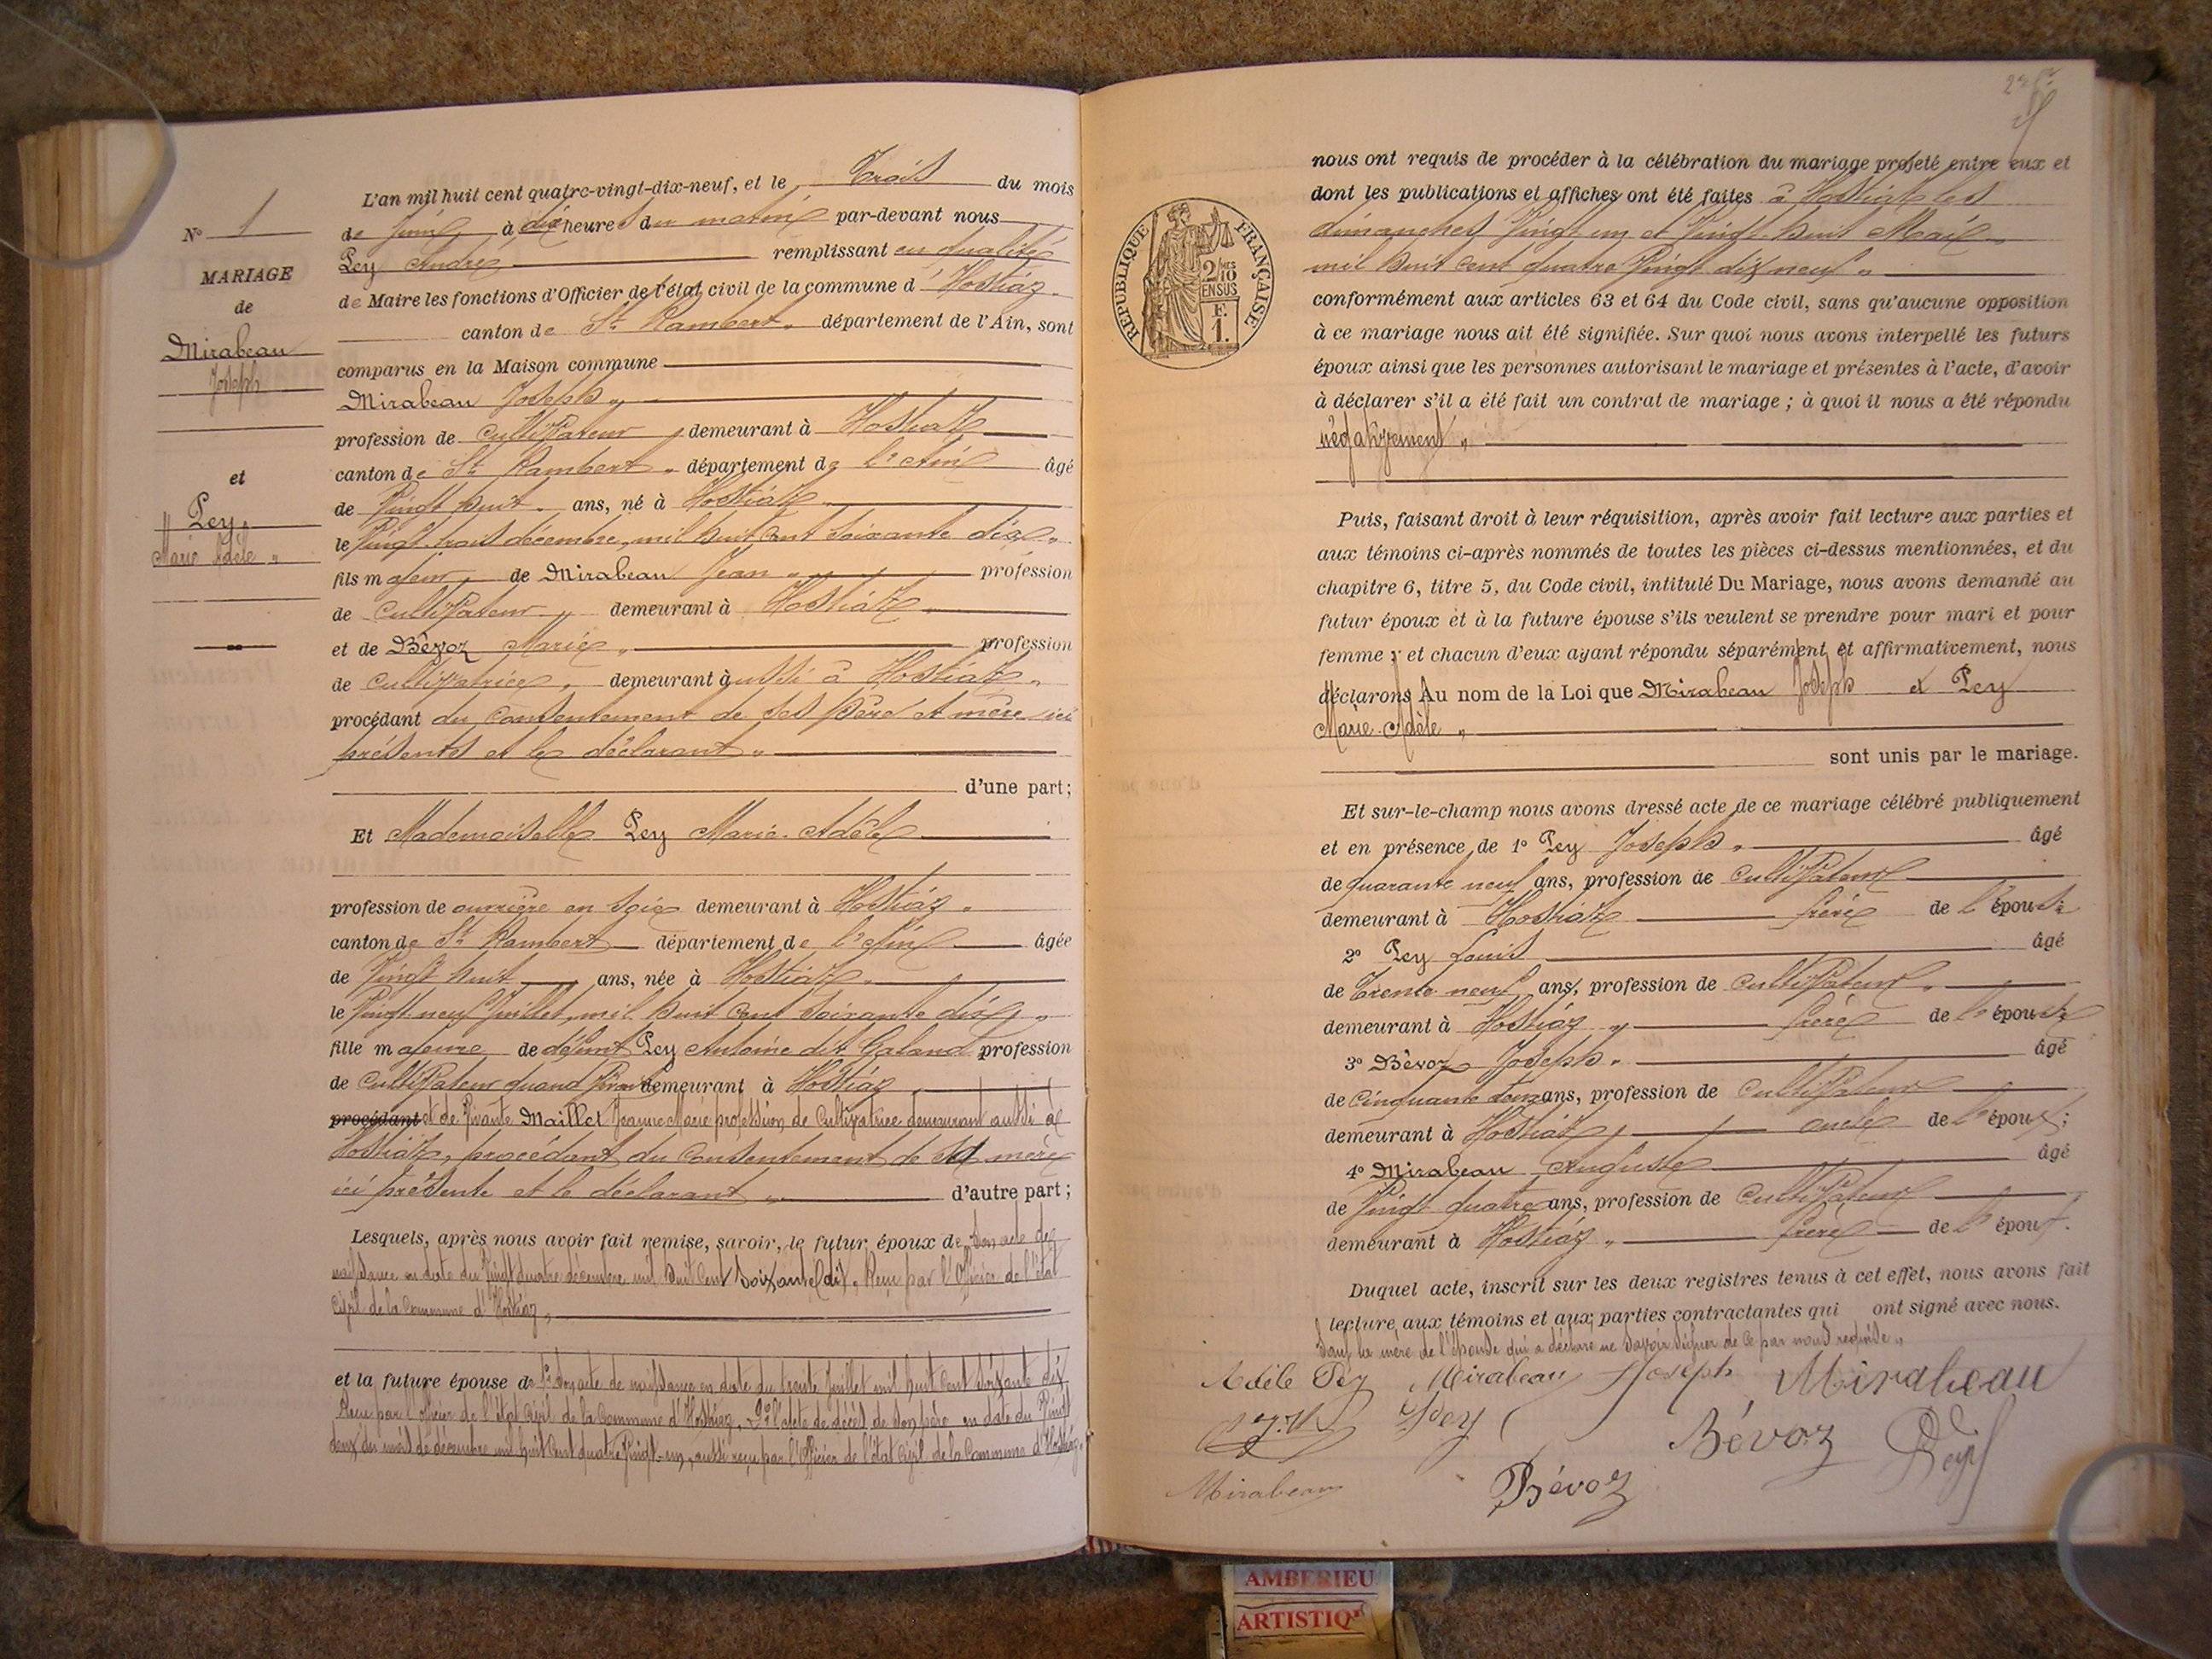 N° 1
MARIAGE
de
Mirabeau
Joseph
et
Pey
Marie Adèle
L'an mil huit cent quatre-vingt-dix-neuf, et le Trois du mois
de Juin à dix heures du matin par-devant nous
Pey André remplissant en qualité
de Maire les fonctions d'Officier de l'état civil de la commune d'Hostiaz
canton de St Rambert département de l'Ain, sont
comparus en la Maison commune
Mirabeau Joseph
profession de Cultivateur demeurant à Hostiaz
canton de St Rambert département de l'Ain âgé
de Vingt huit ans, né à Hostiaz
le Vingt trois décembre mil huit cent soixante dix
fils majeur de Mirabeau Jean profession
de Cultivateur demeurant à Hostiaz
et de Bévoz Marie profession
de Cultivatrice, demeurant aussi à Hostiaz
procédant du consentement de ses père et mère ici
présents et le déclarant
d'une part;
Et Mademoiselle Pey Marie Adèle
profession de ouvrière en soie demeurant à Hostiaz
canton de St Rambert département de l'Ain âgée
de Vingt huit ans, née à Hostiaz
le Vingt neuf Juillet, mil huit cent soixante dix
fille majeure de défunt Pey Antoine dit Galand profession
de Cultivateur quand vivant demeurant à Hostiaz
procédant et de vivante Maillet Jeanne Marie profession de Cultivatrice demeurant aussi à
Hostiaz, procédant du consentement de sa mère
ici présente et le déclarant d'autre part;
Lesquels, après nous avoir fait remise, savoir, le futur époux de son acte de
naissance en date du Vingt quatre décembre mil huit cent soixante dix, Reçu par l'Officier de l'état
civil de la Commune d'Hostiaz
et la future épouse de 1° son acte de naissance en date du trente Juillet mil huit cent soixante dix
Reçu par l'officier de l'état civil de la Commune d'Hostiaz. 2° l'acte de décès de son père en date du Vingt
deux du mois de décembre mil huit cent quatre vingt-un, aussi reçu par l'Officier de l'état civil de la Commune d'Hostiaz
RÉPUBLIQUE FRANÇAISE
2/10
EN SUS
F.
1.
nous ont requis de procéder à la célébration du mariage projeté entre eux et
dont les publications et affiches ont été faites à Hostiaz les
dimanches Vingt un et Vingt huit Mai
mil huit cent quatre Vingt dix neuf
conformément aux articles 63 et 64 du Code civil, sans qu'aucune opposition
à ce mariage nous ait été signifiée. Sur quoi nous avons interpellé les futurs
époux ainsi que les personnes autorisant le mariage et présentes à l'acte, d'avoir
à déclarer s'il a été fait un contrat de mariage; à quoi il nous a été répondu
négativement
Puis, faisant droit à leur réquisition, après avoir fait lecture aux parties et
aux témoins ci-après nommés de toutes les pièces ci-dessus mentionnées, et du
chapitre 6, titre 5, du Code civil, intitulé Du Mariage, nous avons demandé au
futur époux et à la future épouse s'ils veulent se prendre pour mari et pour
femme; et chacun d'eux ayant répondu séparément et affirmativement, nous
déclarons Au nom de la Loi que Mirabeau Joseph et Pey
Marie Adèle
sont unis par le mariage.
Et sur-le-champ nous avons dressé acte de ce mariage célébré publiquement
et en présence de 1° Pey Joseph âgé
de quarante neuf ans, profession de Cultivateur
demeurant à Hostiaz frère de l'épouse
2° Pey Louis âgé
de Trente neuf ans, profession de Cultivateur
demeurant à Hostiaz frère de l'épouse
3° Bévoz Joseph âgé
de Cinquante ans, profession de Cultivateur
demeurant à Hostiaz, oncle de l'époux;
4° Mirabeau Auguste âgé
de Vingt quatre ans, profession de Cultivateur
demeurant à Hostiaz frère de l'époux.
Duquel acte, inscrit sur les deux registres tenus à cet effet, nous avons fait
lecture aux témoins et aux parties contractantes qui ont signé avec nous.
Sauf la mère de l'épouse qui a déclaré ne savoir signer de ce par nous requise
Adèle Pey Mirabeau Joseph Mirabeau
Pey Bévoz Pey
Mirabeau Bévoz
AMBERIEU
ARTISTIQ